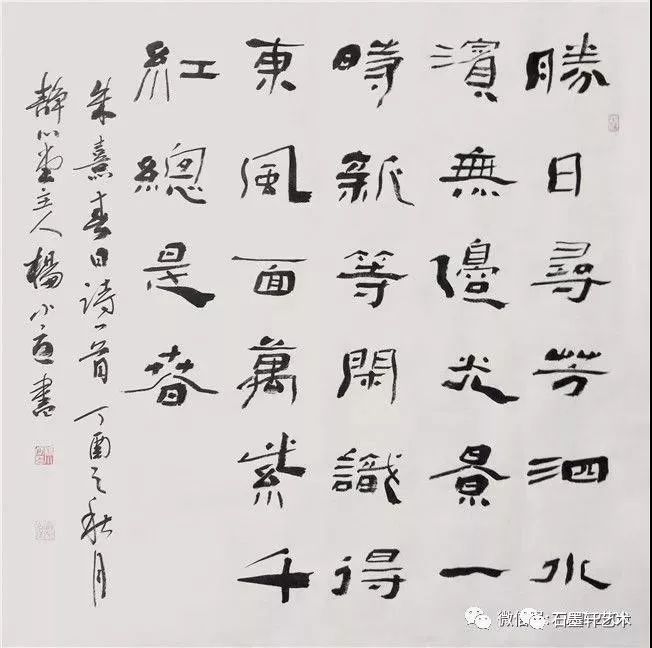 勝日尋芳泗水
濱無邊光景一
時新等閑識得
東風面萬紫千
紅總是春
朱熹春日詩一首 丁酉之秋月
靜心堂主人楊小書
微信号: 石墨轩艺术